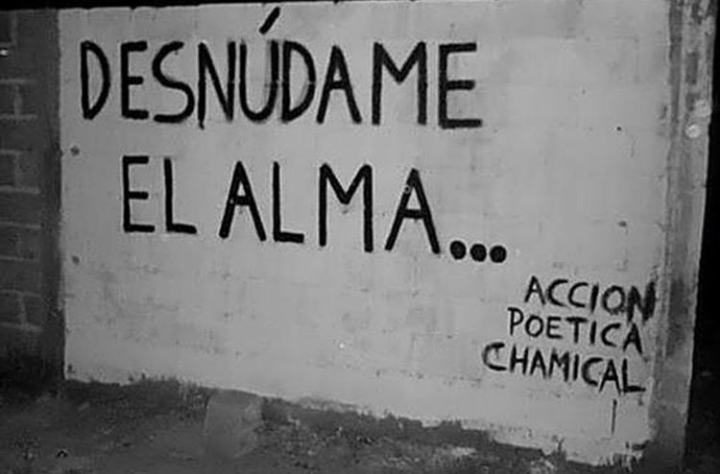 DESNÚDAME
EL ALMA...
ACCION
POETICA
CHAMICAL